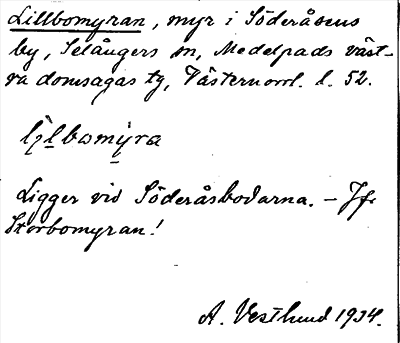 Lillbomyran, myr i Söderåsens
by, Selångers sn, Medelpads väst-
ra domsagas tg, Västernorrl. l. 52.
lilbomyra
Ligger vid Söderåsbodarna. – Jfr
Storbomyran!
A. Vestlund 1934.